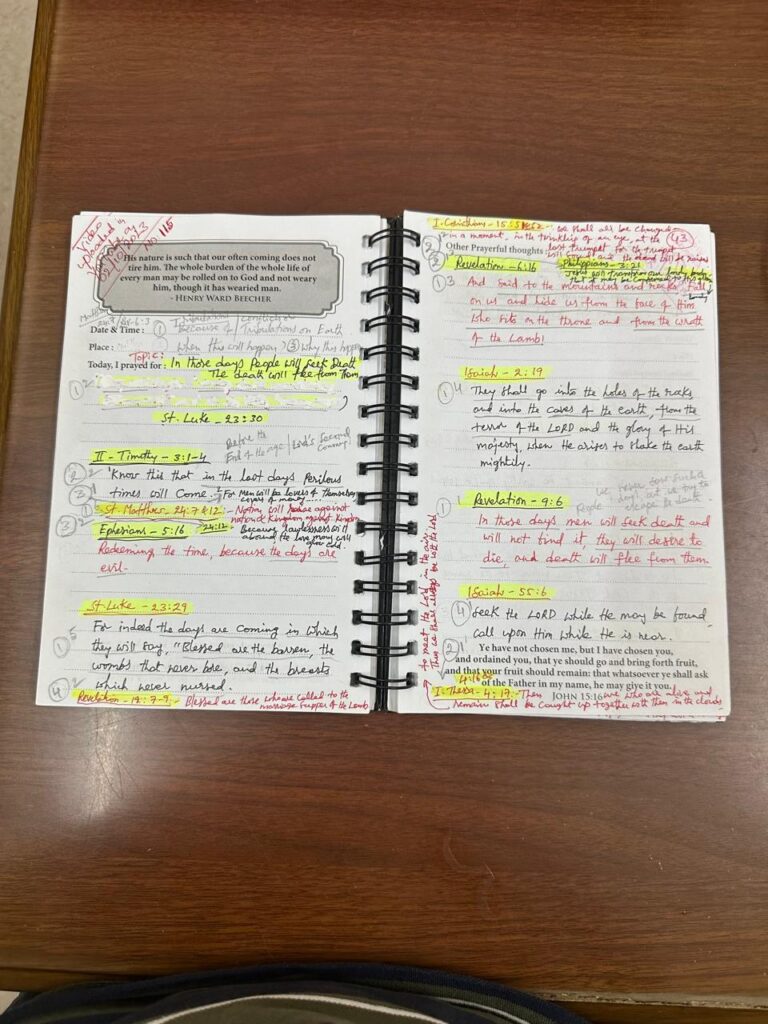 Video
uploaded in
02/10/2023
NO 115
His nature is such that our often coming does not
tire him. The whole burden of the whole life of
every man may be rolled on to God and not weary
him, though it has wearied man.
- HENRY WARD BEECHER
Date & Time : ①
Because of Tribulations on Earth
Place : ② When this will happen? ③ Why this
Topic:
Today, I prayed for : In those days People will Seek Death
The death will flee from them
① 2
St. Luke - 23:30
Before the
End of the age / Lord's Second
Coming
II - Timothy - 3:1-4
② 2 'Know this that in the last days Perilous
③ 1 times will Come. For Men will be lovers of themselves
lovers of money....
St. Matthew 24:7 & 12 - Nation will rise against
nation & Kingdom against Kingdom
③ 2 Ephesians - 5:16 24:12 - Because lawlessness will
abound the love many will
grow cold.
Redeeming the time, because the days are
evil.
St. Luke - 23:29
For indeed the days are coming in which
① 5 they will say, "Blessed are the barren, the
wombs that never bore, and the breasts
④ 2 which never nursed.
Revelation - 19:7-9 - Blessed are those who are called to the
marriage supper of the Lamb
I. Corinthians - 15:51 & 52 - We shall all be Changed
in a moment, in the twinkling of an eye, at the
43
last trumpet for the trumpet
Other Prayerful thoughts
will sound and the dead will be raised
Revelation - 6:16
Philippians - 3:21
Jesus will transform our lowly body
that it may be conformed to His
body
① 3 And said to the mountains and rocks, Fall
on us and hide us from the face of Him
who sits on the throne and from the wrath
of the Lamb!
Isaiah - 2:19
① 4 They shall go into the holes of the rocks
and into the caves of the earth, from the
terror of the LORD and the glory of His
majesty, when He arises to shake the earth
mightily.
We never saw such a
People
Revelation - 9:6
① 1 In those days men will seek death and
will not find it, they will desire to
die, and death will flee from them.
Isaiah - 55:6
④ Seek the LORD while He may be found,
call upon Him while He is near.
② 1 Ye have not chosen me, but I have chosen you,
and ordained you, that ye should go and bring forth fruit,
and that your fruit should remain: that whatsoever ye shall ask
of the Father in my name, he may give it you.
JOHN 15:16
4:16
I. Thess - 4:17 - Then we who are alive and
remain shall be caught up together with them in the clouds
→ to meet the Lord in the air.
Thus we shall always be with the Lord.